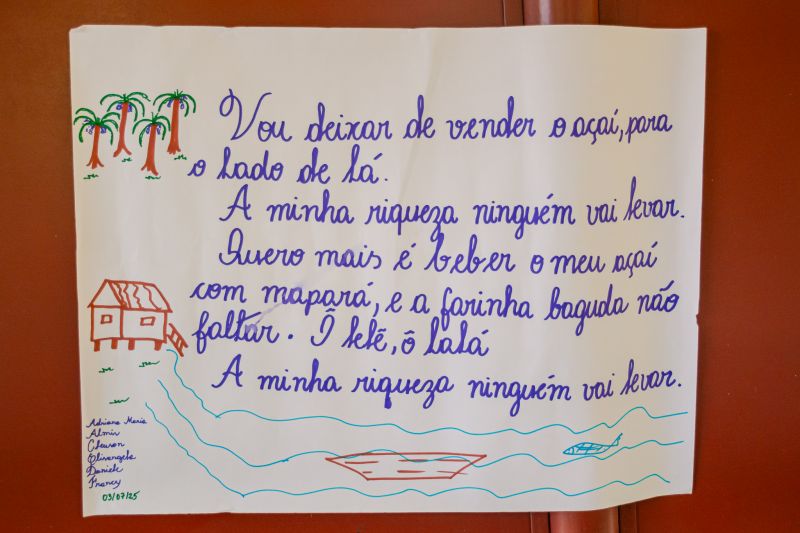 Vou deixar de vender o açaí, para
o lado de lá.
A minha riqueza ninguém vai levar.
Quero mais é beber o meu açaí
com mapará, e a farinha baguda não
faltar. Ô lelê, ô lalá
A minha riqueza ninguém vai levar.
Adriane Maria
Almir
Cleuson
Olivangela
Daniele
Francy
03/07/25